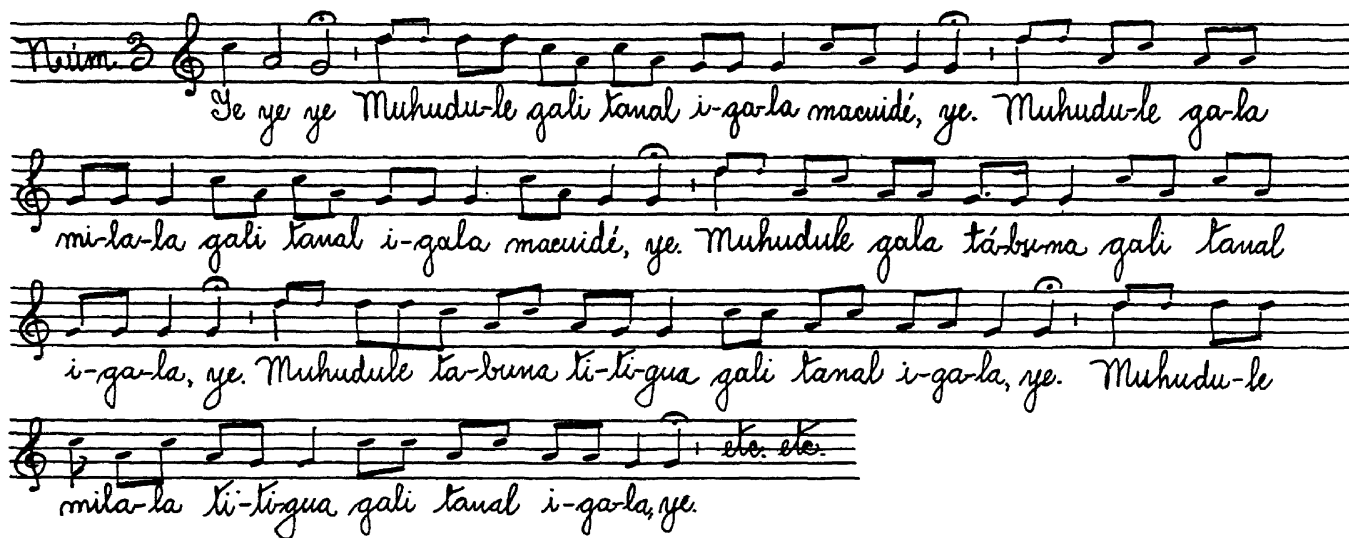 Núm. 3
Ye ye ye Muhudu-le gali tanal i-ga-la macuidé, ye. Muhudu-le ga-la
mi-la-la gali tanal i-gala macuidé, ye. Muhudule gala tá-bu-na gali tanal
i-ga-la, ye. Muhudule ta-buna ti-ti-gua gali tanal i-ga-la, ye. Muhudu-le
etc. etc.
mila-la ti-ti-gua gali tanal i-ga-la, ye.